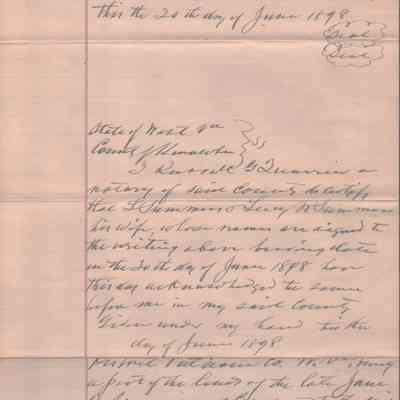 this the 20th day of June 1898
Seal
Seal
State of West Va
County of Kanawha } SS
I Russell G Quarrier a
notary of said County do certify
that L Summers & Lucy W Summers
his wife, whose names are signed to
the writing above bearing date
on the 20th day of June 1898 have
this day acknowledged the same
before me in my said County
Given under my hand this the
day of June 1898
Putnam Co. W. Va,
a part of the lands of the late Jane